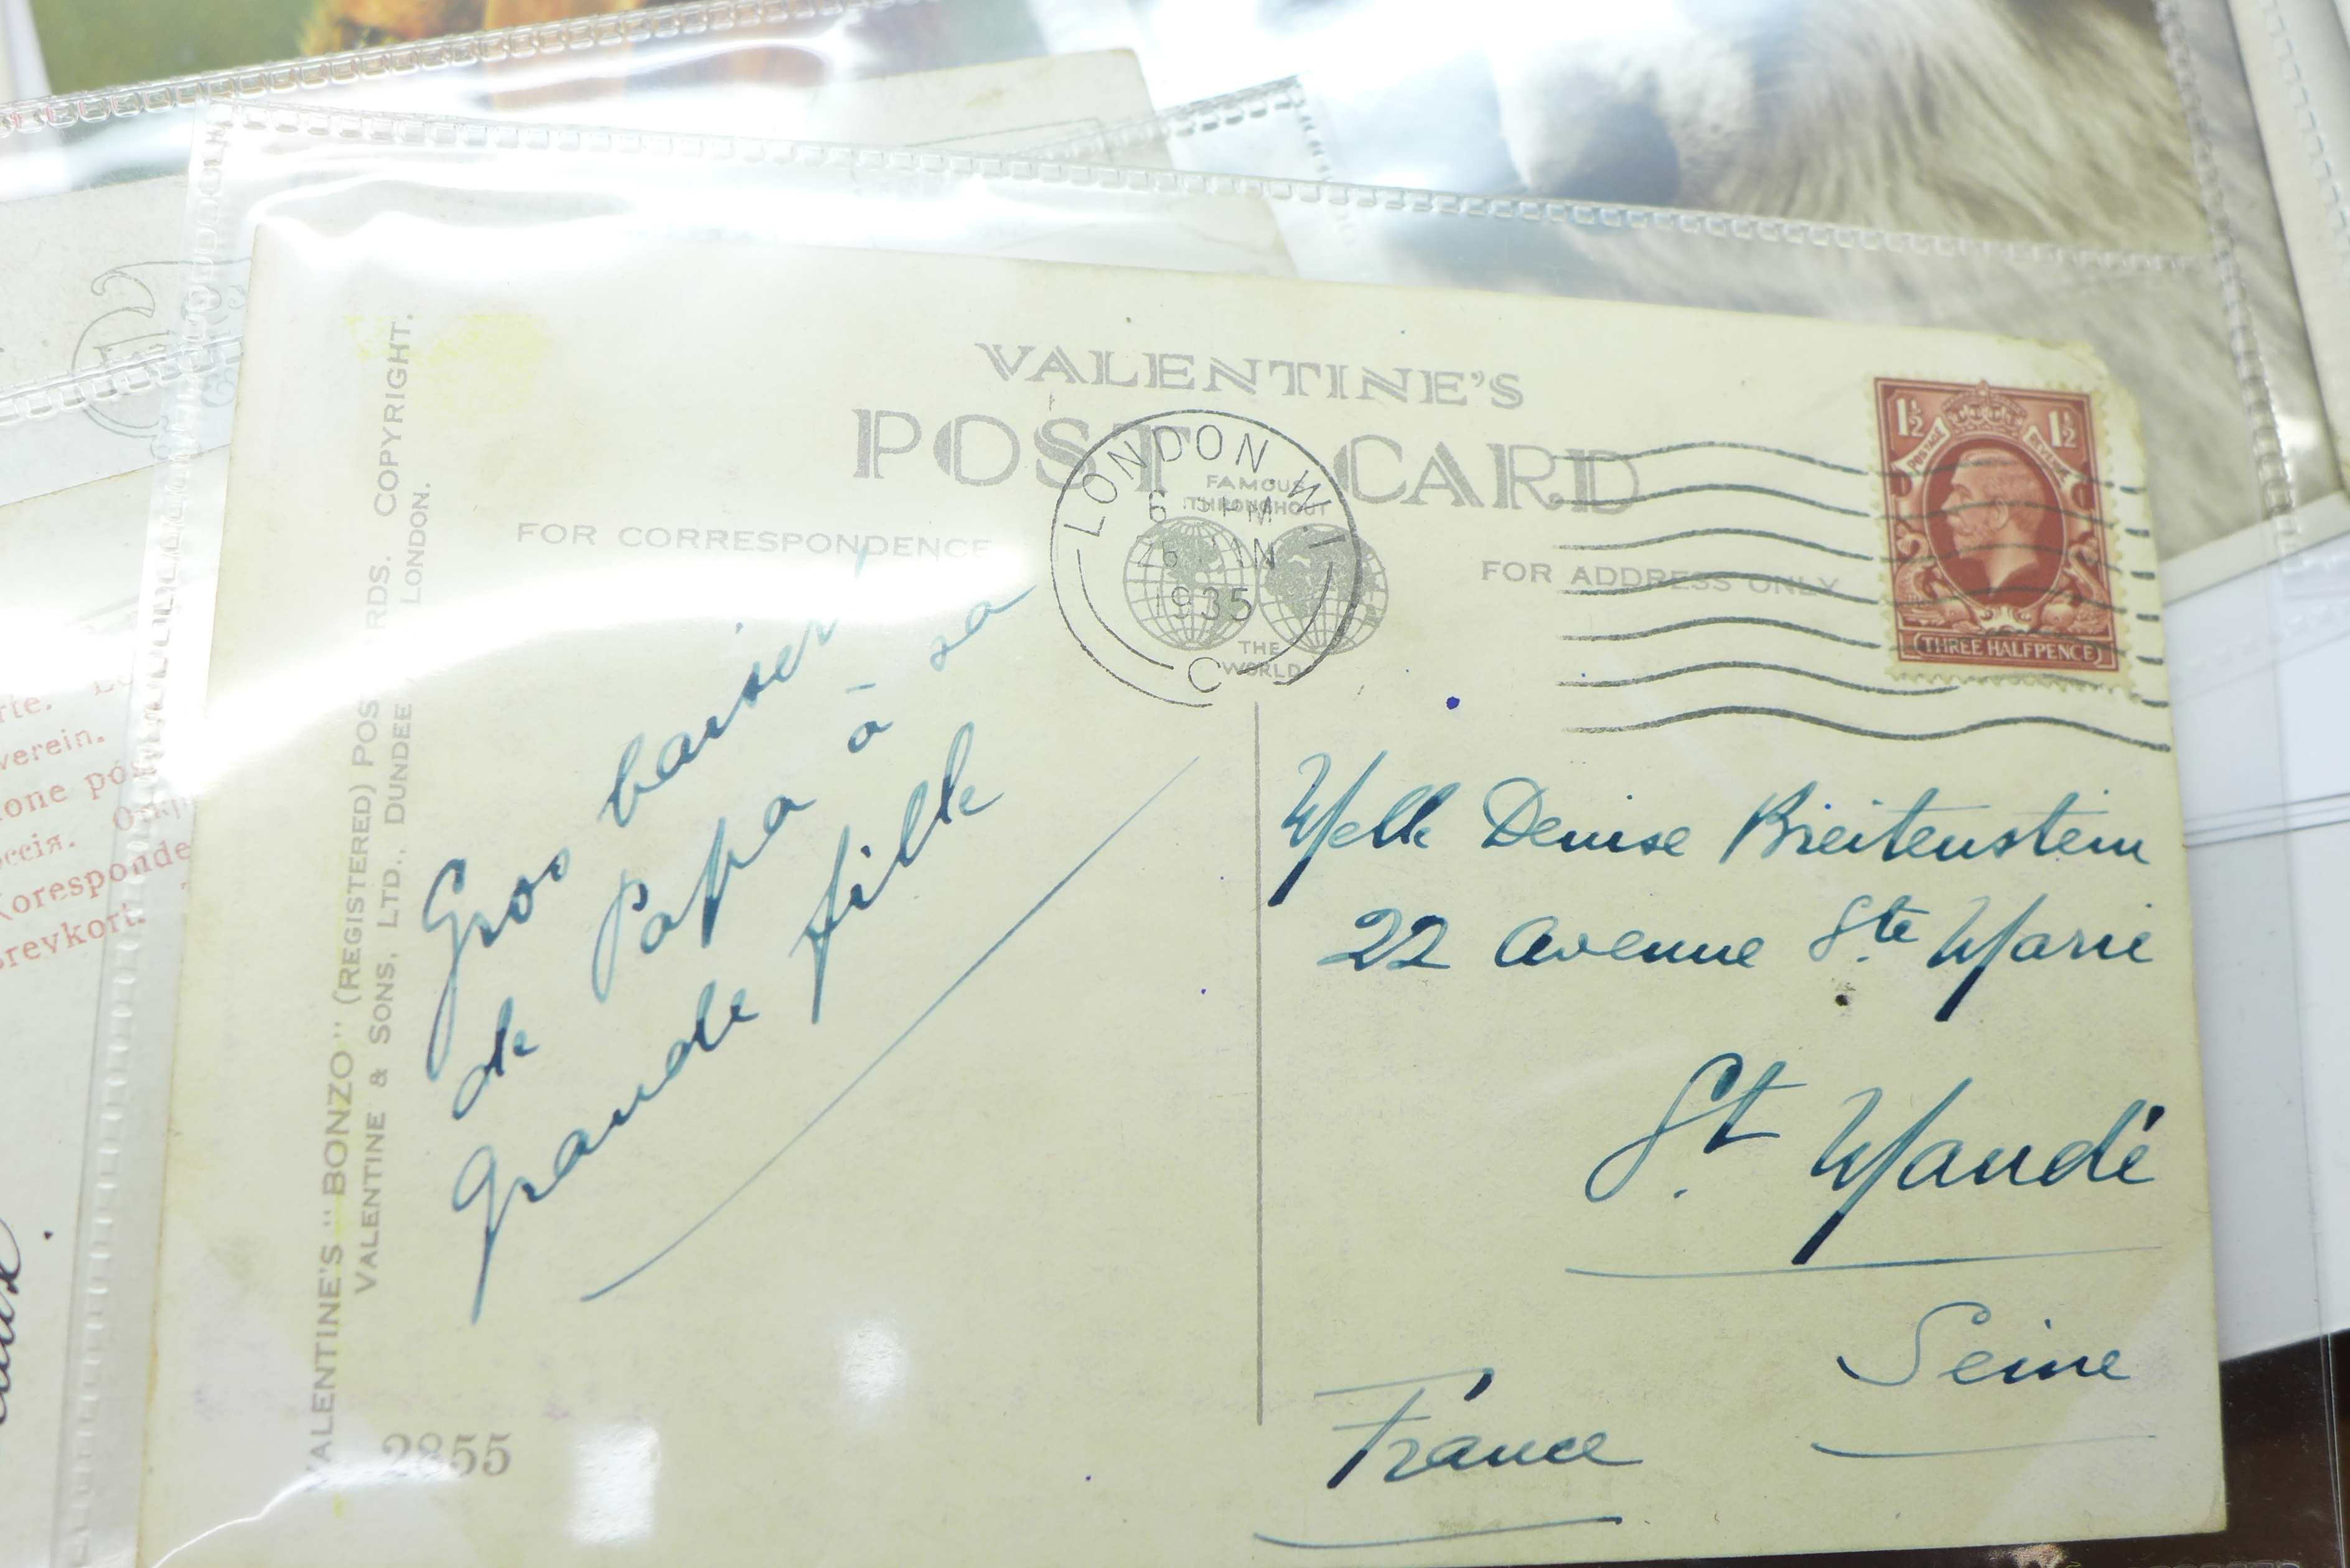 VALENTINE'S
POST CARD
FAMOUS
THROUGHOUT
THE
WORLD
FOR CORRESPONDENCE
FOR ADDRESS ONLY
LONDON. W.1
6 PM
26 JAN
1935
C
1½ 1½
POSTAGE REVENUE
THREE HALFPENCE
VALENTINE'S "BONZO" (REGISTERED) POS RDS. COPYRIGHT.
VALENTINE & SONS, LTD., DUNDEE LONDON.
Gros baiser
de Papa à sa
grande fille
Melle Denise Breitenstein
22 Avenue Ste Marie
St Mandé
Seine
France
2855
rte.
verein.
one pó
occiя.
Koresponde
Brevkort.